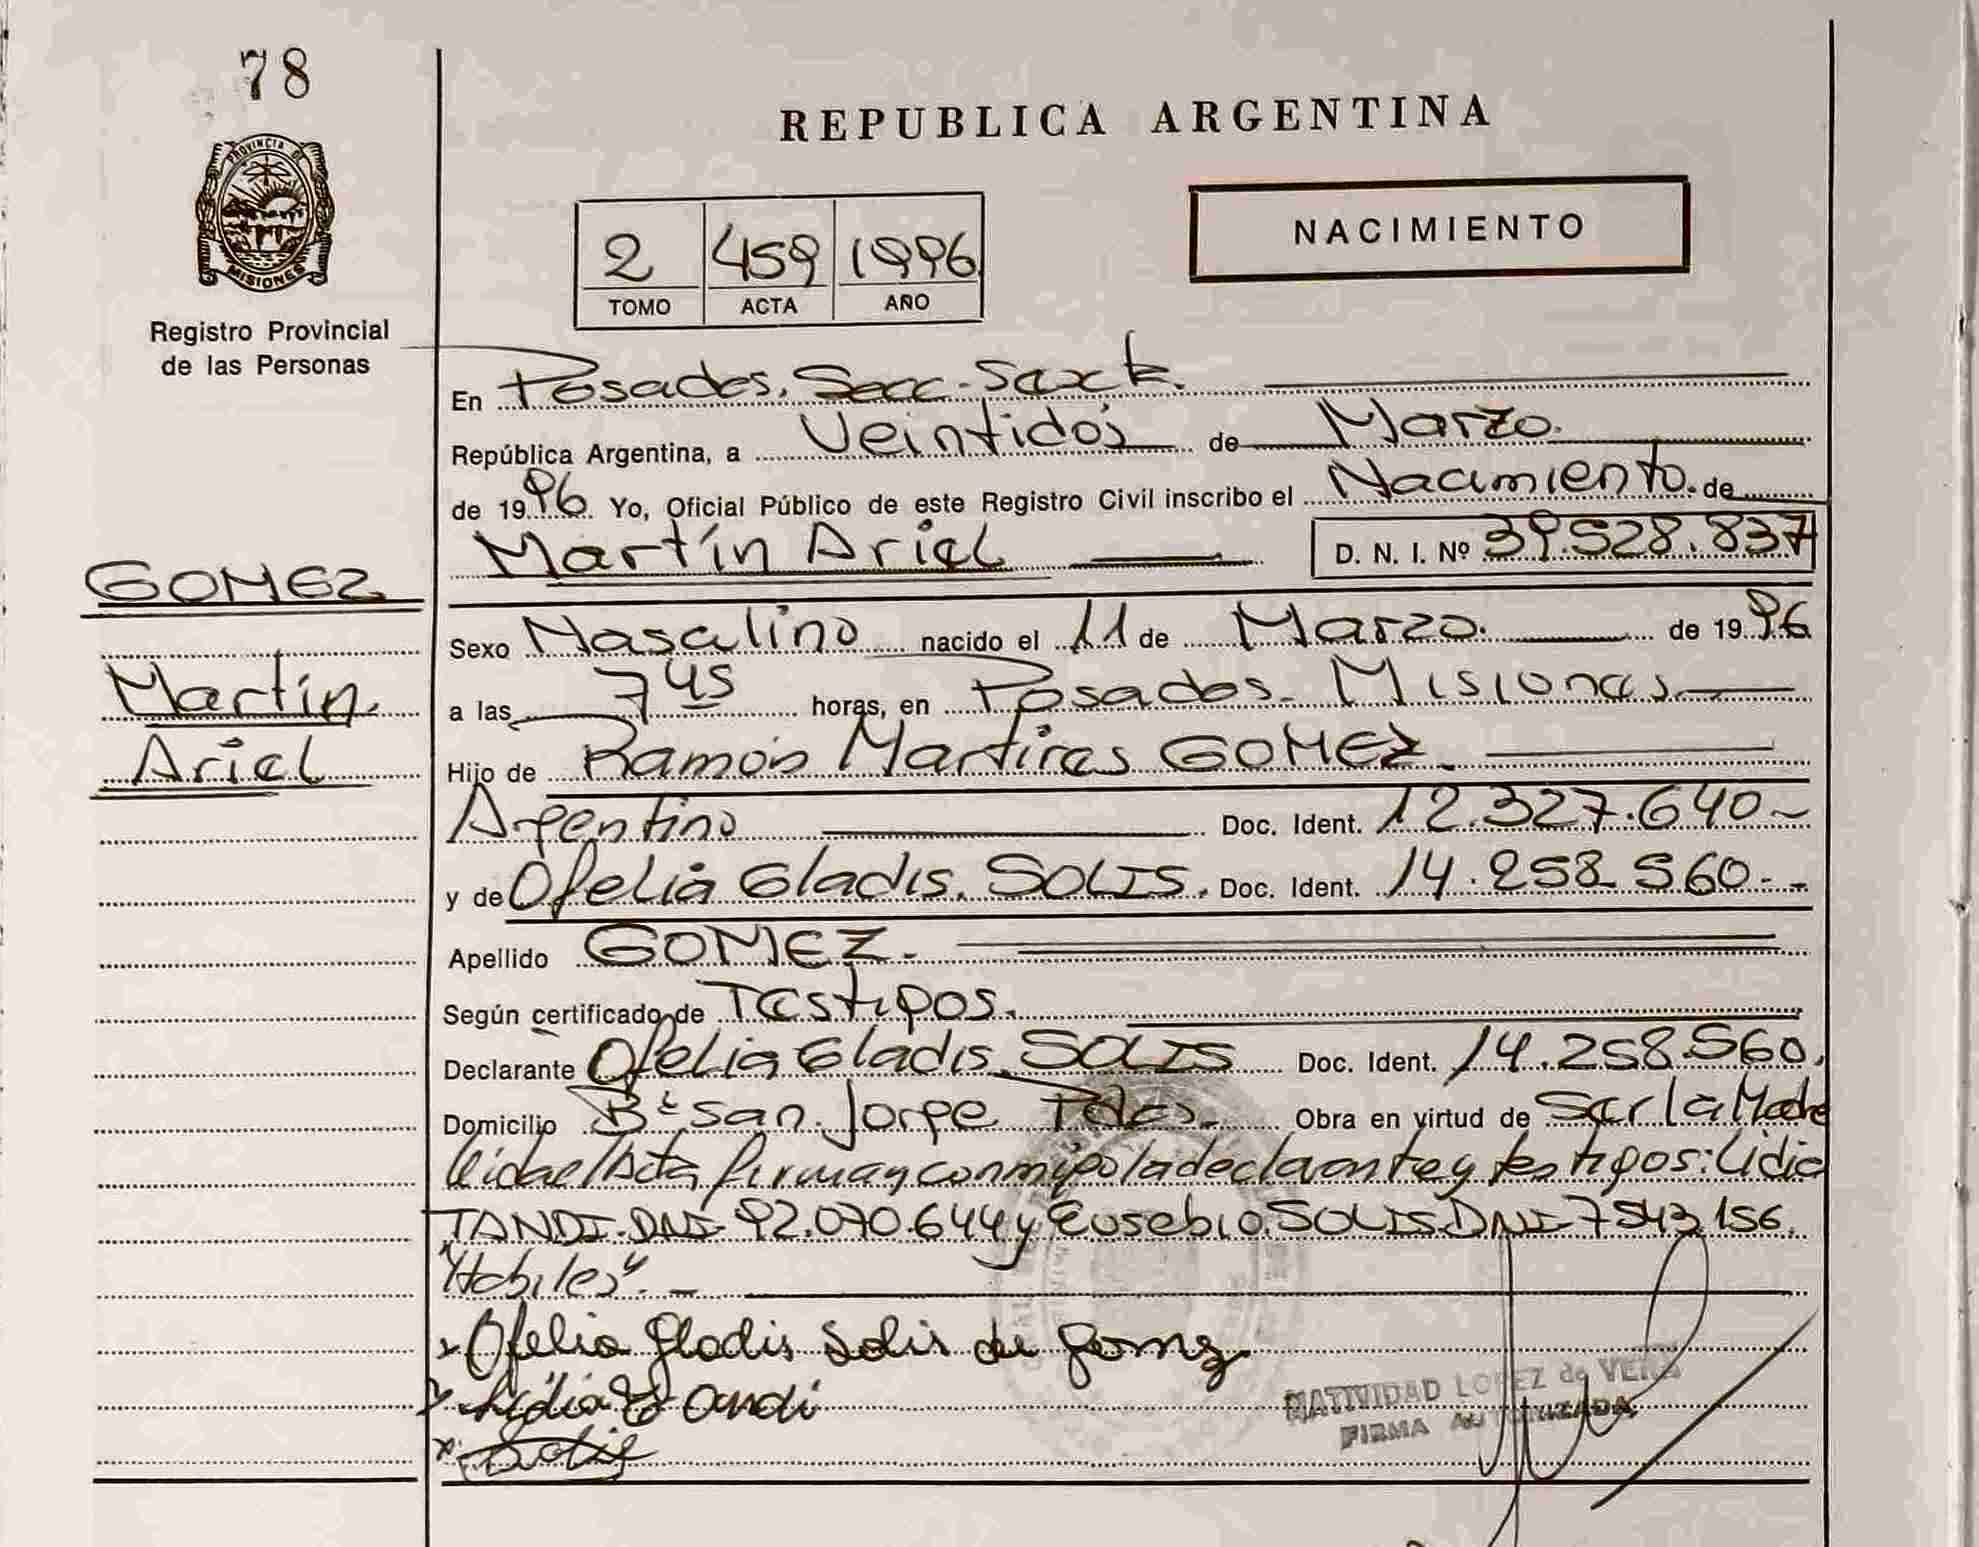 78
PROVINCIA DE
MISIONES
Registro Provincial
de las Personas
REPUBLICA ARGENTINA
NACIMIENTO
2 459 1996
TOMO ACTA AÑO
En Posadas. Secc. Sexta.
República Argentina, a Veintidós de Marzo.
de 1996. Yo, Oficial Público de este Registro Civil inscribo el Nacimiento. de
Martín Ariel D. N. I. Nº 39.528.837
GOMEZ
Martín.
Ariel
Sexo Masculino nacido el 11 de Marzo. de 1996
a las 7 45 horas, en Posadas. Misiones
Hijo de Ramón Martires GOMEZ.
Argentino Doc. Ident. 12.327.640-
y de Ofelia Gladis. SOLIS. Doc. Ident. 14.258.560.-
Apellido GOMEZ.
Según certificado de Testigos.
Declarante Ofelia Gladis. SOLIS Doc. Ident. 14.258.560.
Domicilio Bº San. Jorge Pdas. Obra en virtud de Ser la Madre
leida el Acta, firman conmigo la declarante y testigos: Lidia
TANDI. DNI 92.070.644 y Eusebio. SOLIS DNI 7543156.
"Habiles". -
x Ofelia Gladis Solis de Gomez
x Lidia Tandi
x Solis
NATIVIDAD LOPEZ de VERA
FIRMA AUTORIZADA